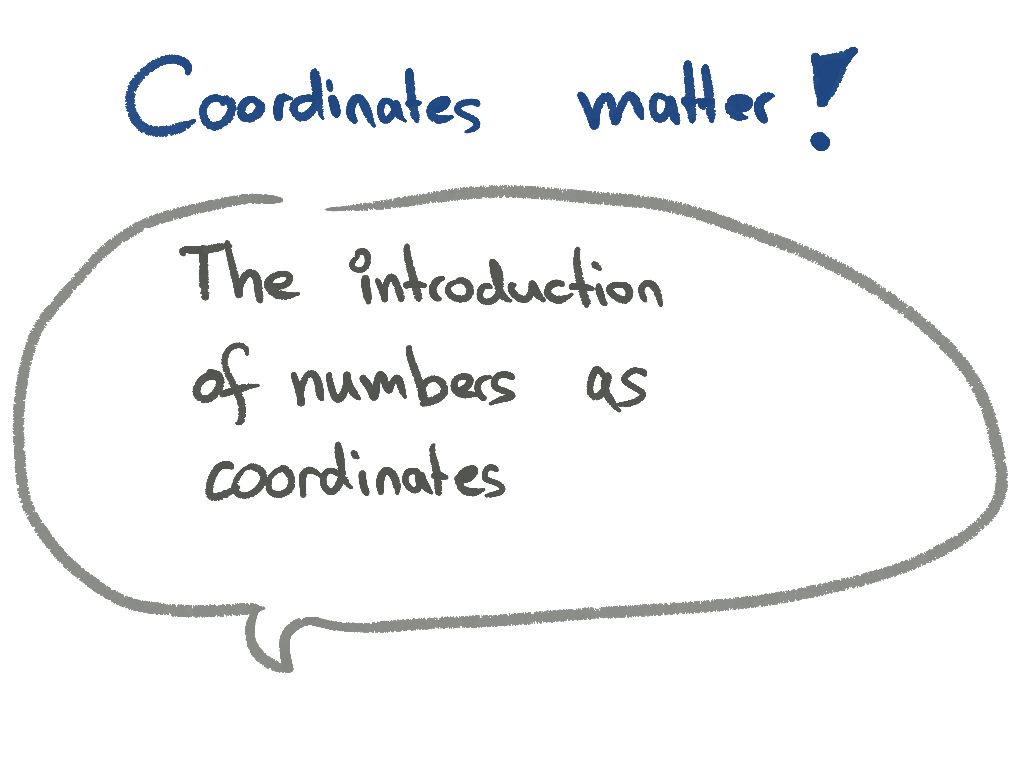 Coordinates matter!
The introduction
of numbers as
coordinates